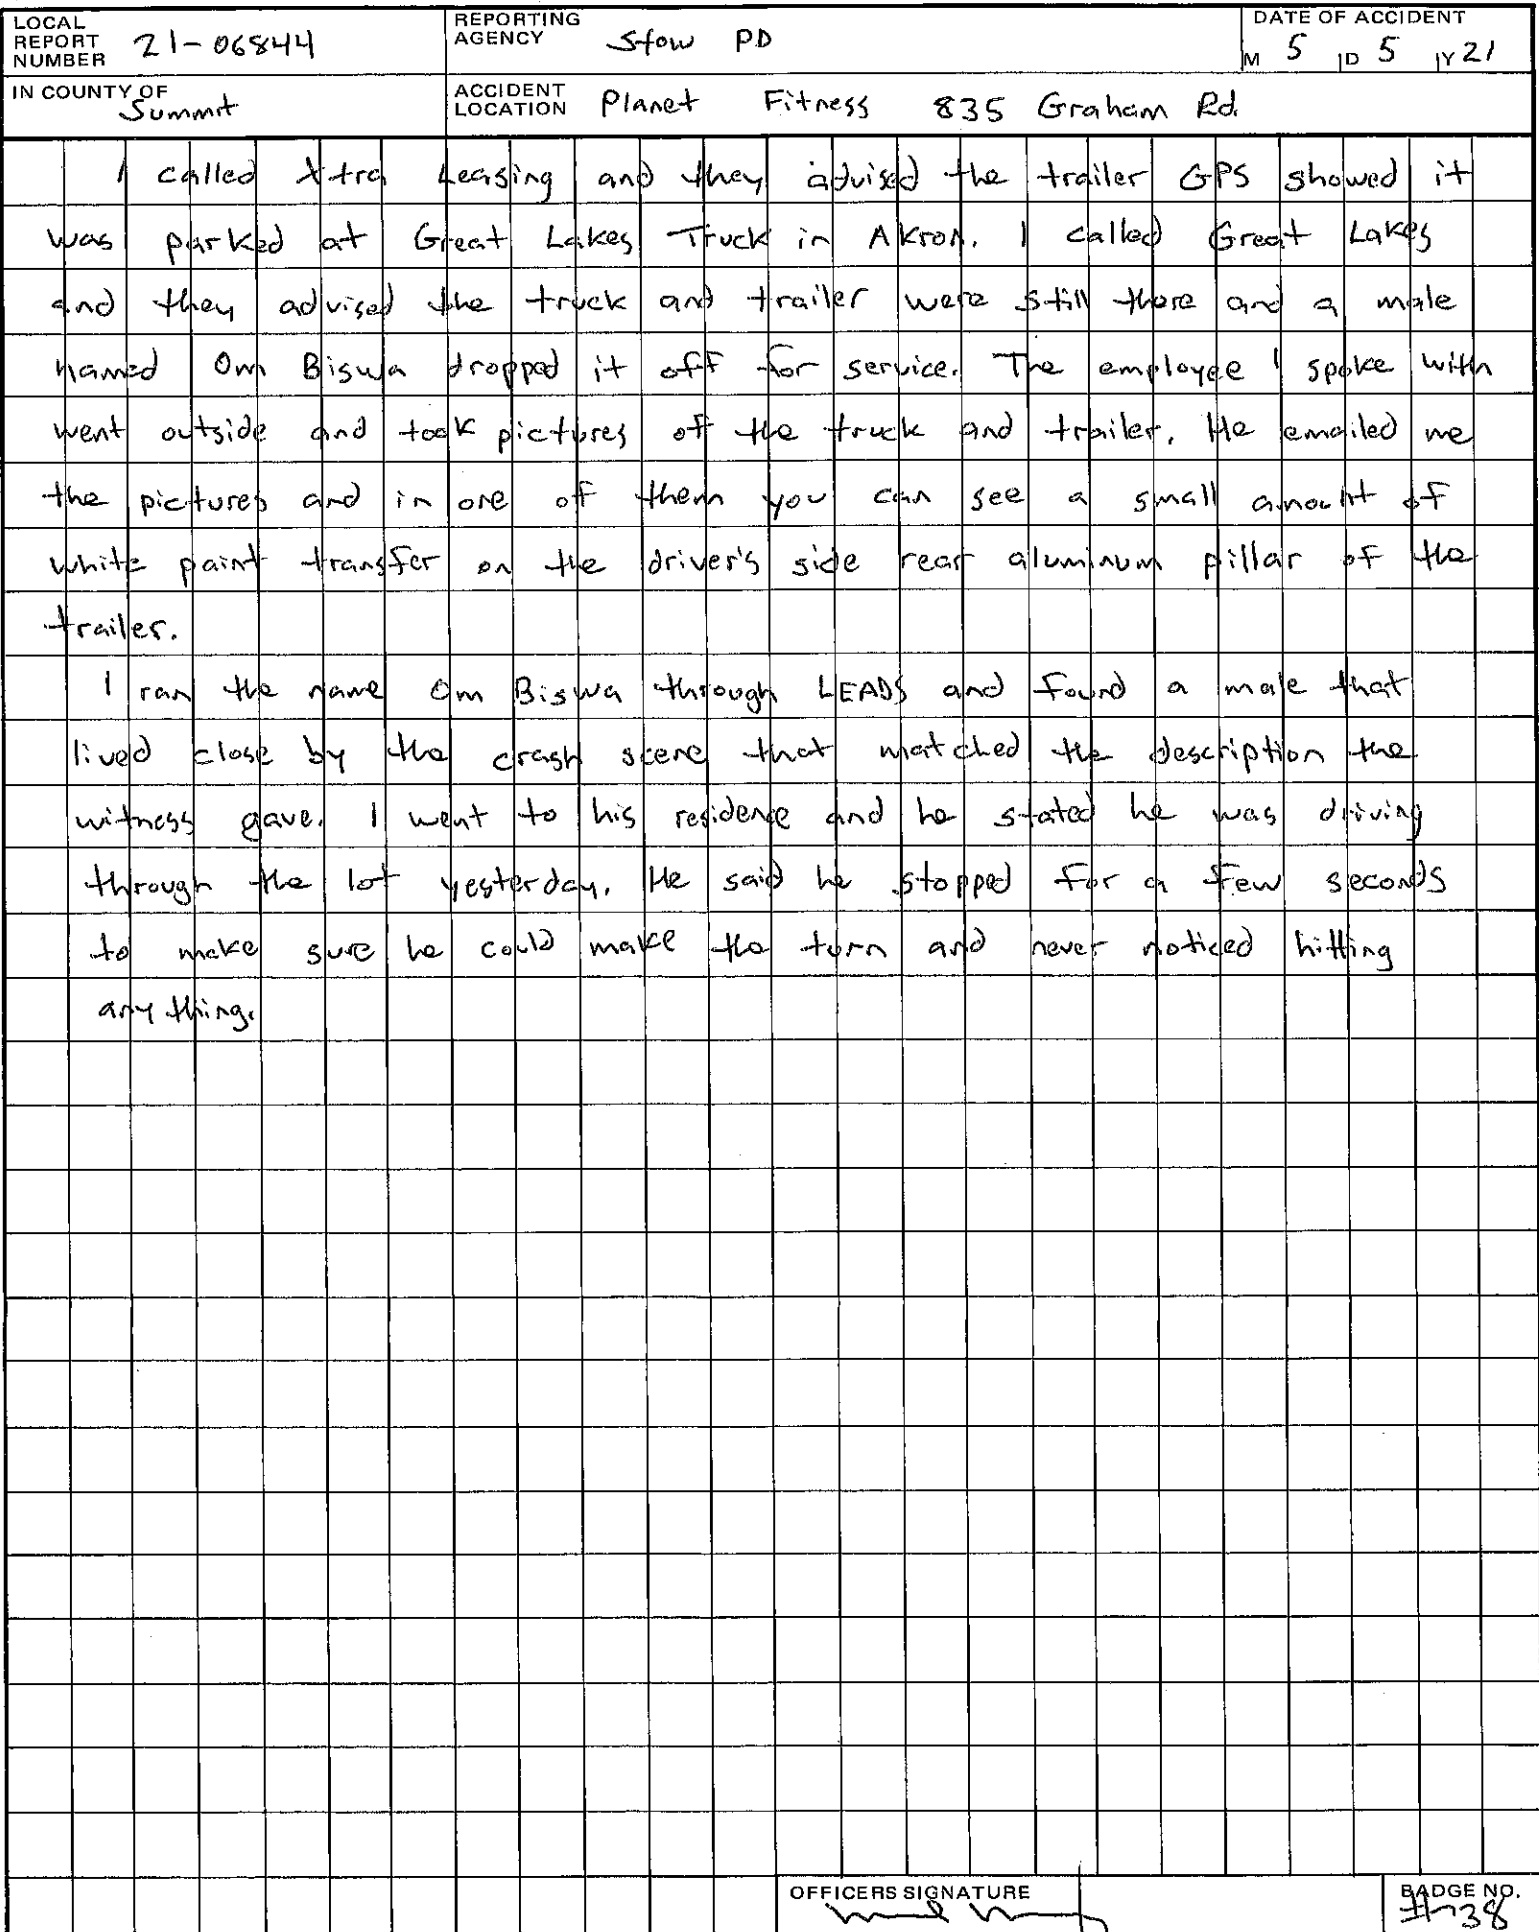 LOCAL REPORT NUMBER 21-06844
REPORTING AGENCY Stow PD
DATE OF ACCIDENT
M 5 D 5 Y 21
IN COUNTY OF Summit
ACCIDENT LOCATION Planet Fitness 835 Graham Rd.
I called Xtra Leasing and they advised the trailer GPS showed it
was parked at Great Lakes Truck in Akron. I called Great Lakes
and they advised the truck and trailer were still there and a male
named Om Biswa dropped it off for service. The employee I spoke with
went outside and took pictures of the truck and trailer. He emailed me
the pictures and in one of them you can see a small amount of
white paint transfer on the driver's side rear aluminum pillar of the
trailer.
I ran the name Om Biswa through LEADS and found a male that
lived close by the crash scene that matched the description the
witness gave. I went to his residence and he stated he was driving
through the lot yesterday. He said he stopped for a few seconds
to make sure he could make the turn and never noticed hitting
anything.
OFFICERS SIGNATURE
BADGE NO.
#738